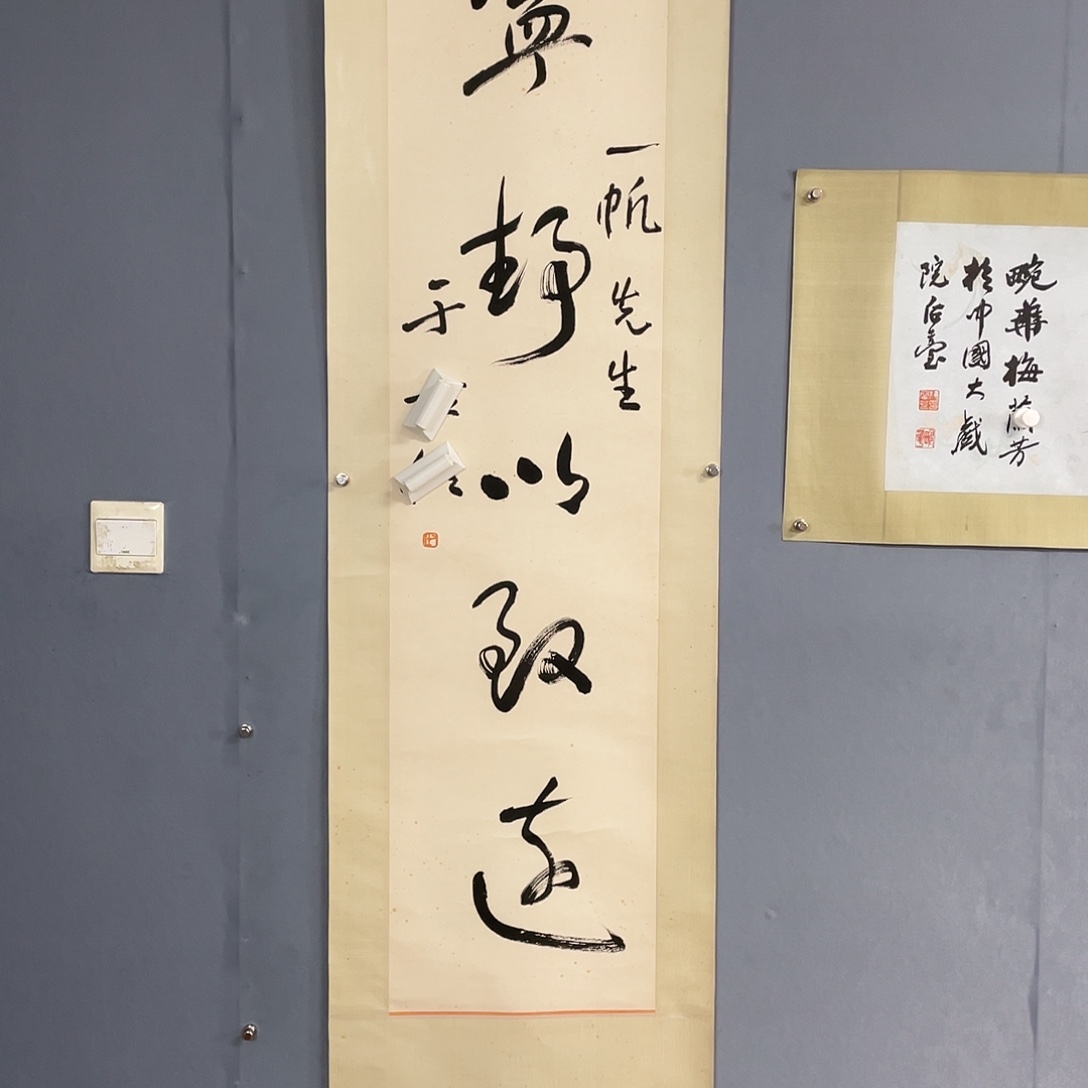 寧靜以致遠
一帆先生
于
畹華梅蘭芳
於中國大戲
院后臺